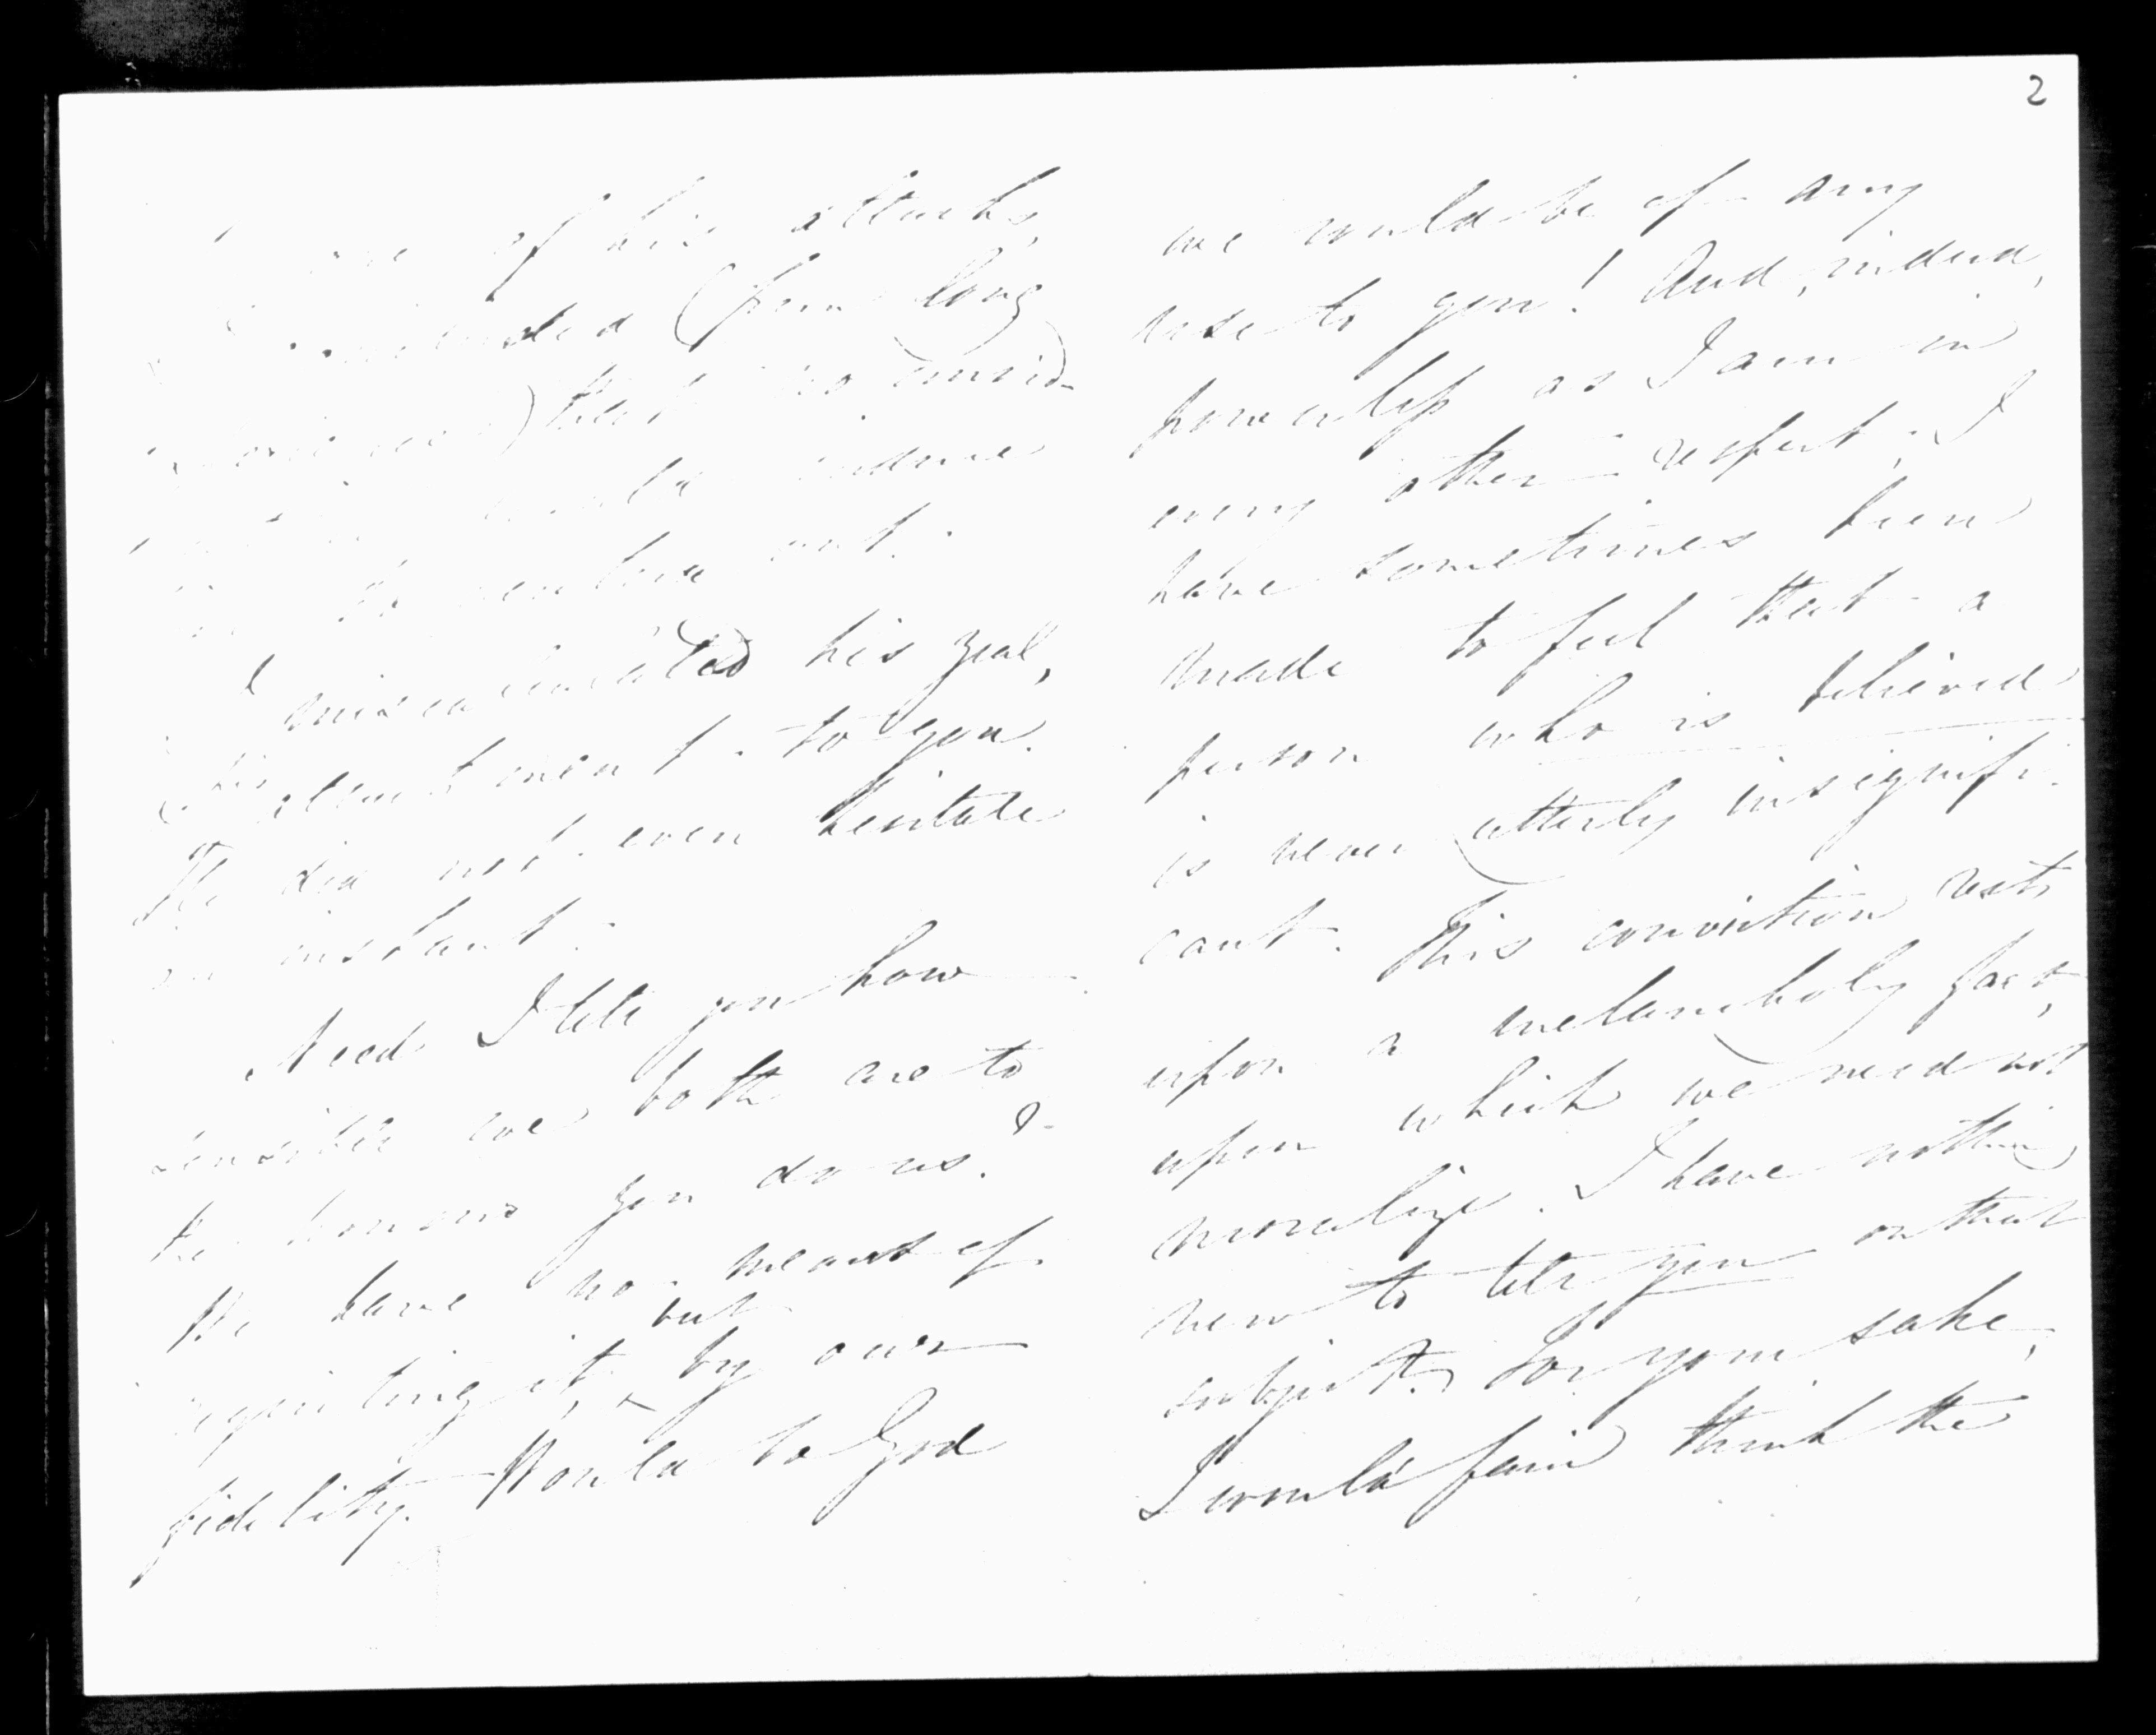 2
of his attacks,
(from long
) that no consid-
would induce
to venture out.
I miscalculated his zeal,
(his attachment to you.
He did not even hesitate
an instant.
Need I tell you how
sensible we both are to
the honour you do us. &
We have no means of
requiting it, but by our
fidelity. Would to God
we could be of any
use to you! And, indeed,
powerless as I am in
every other respect, I
have sometimes been
made to feel that a
person who is believed
is never utterly insignifi-
cant. This conviction rests
upon a melancholy fact,
upon which we need not
moralize. I have nothing
new to tell you on that
subject. For your sake,
I would fain think the